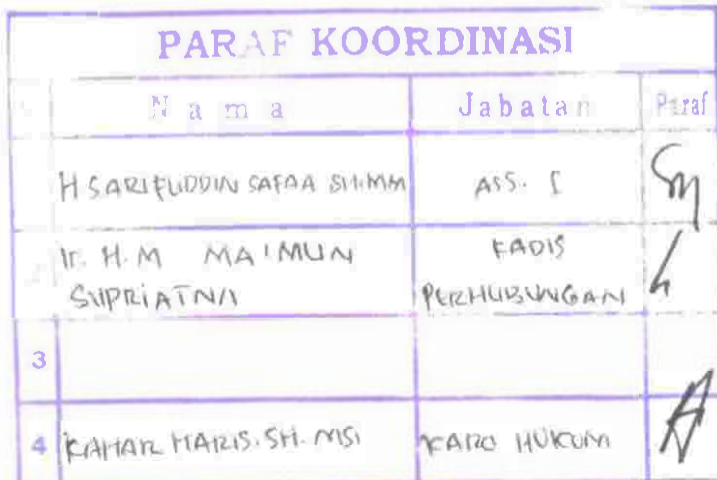 PARAF KOORDINASI
Nama Jabatan Paraf
H SARIFUDDIN SAFAA SH.MM ASS. I
Ir. H. M MAIMUN SUPRIATNA KADIS PERHUBUNGAN
3
4 KAHAR HARIS. SH. MSI KARO HUKUM